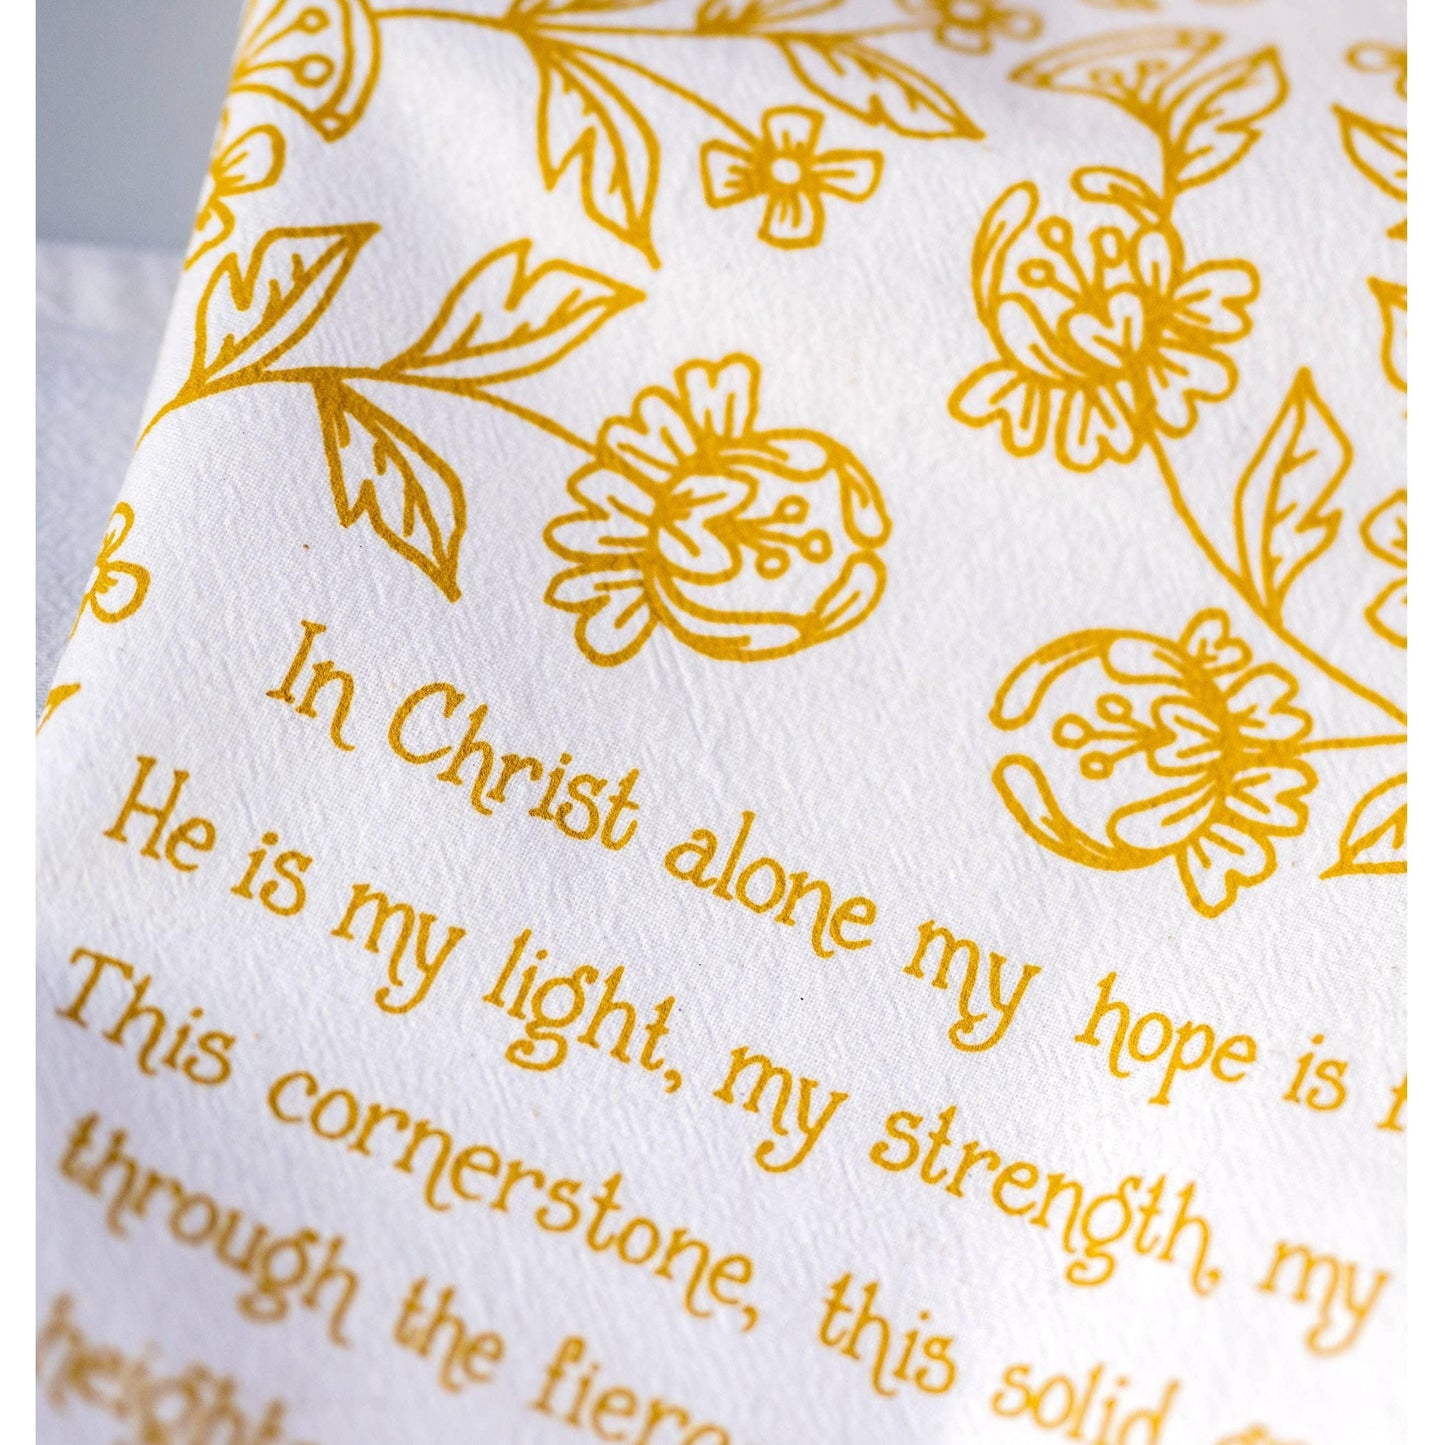 In Christ alone my hope is
He is my light, my strength, my
This cornerstone, this solid
through the
height